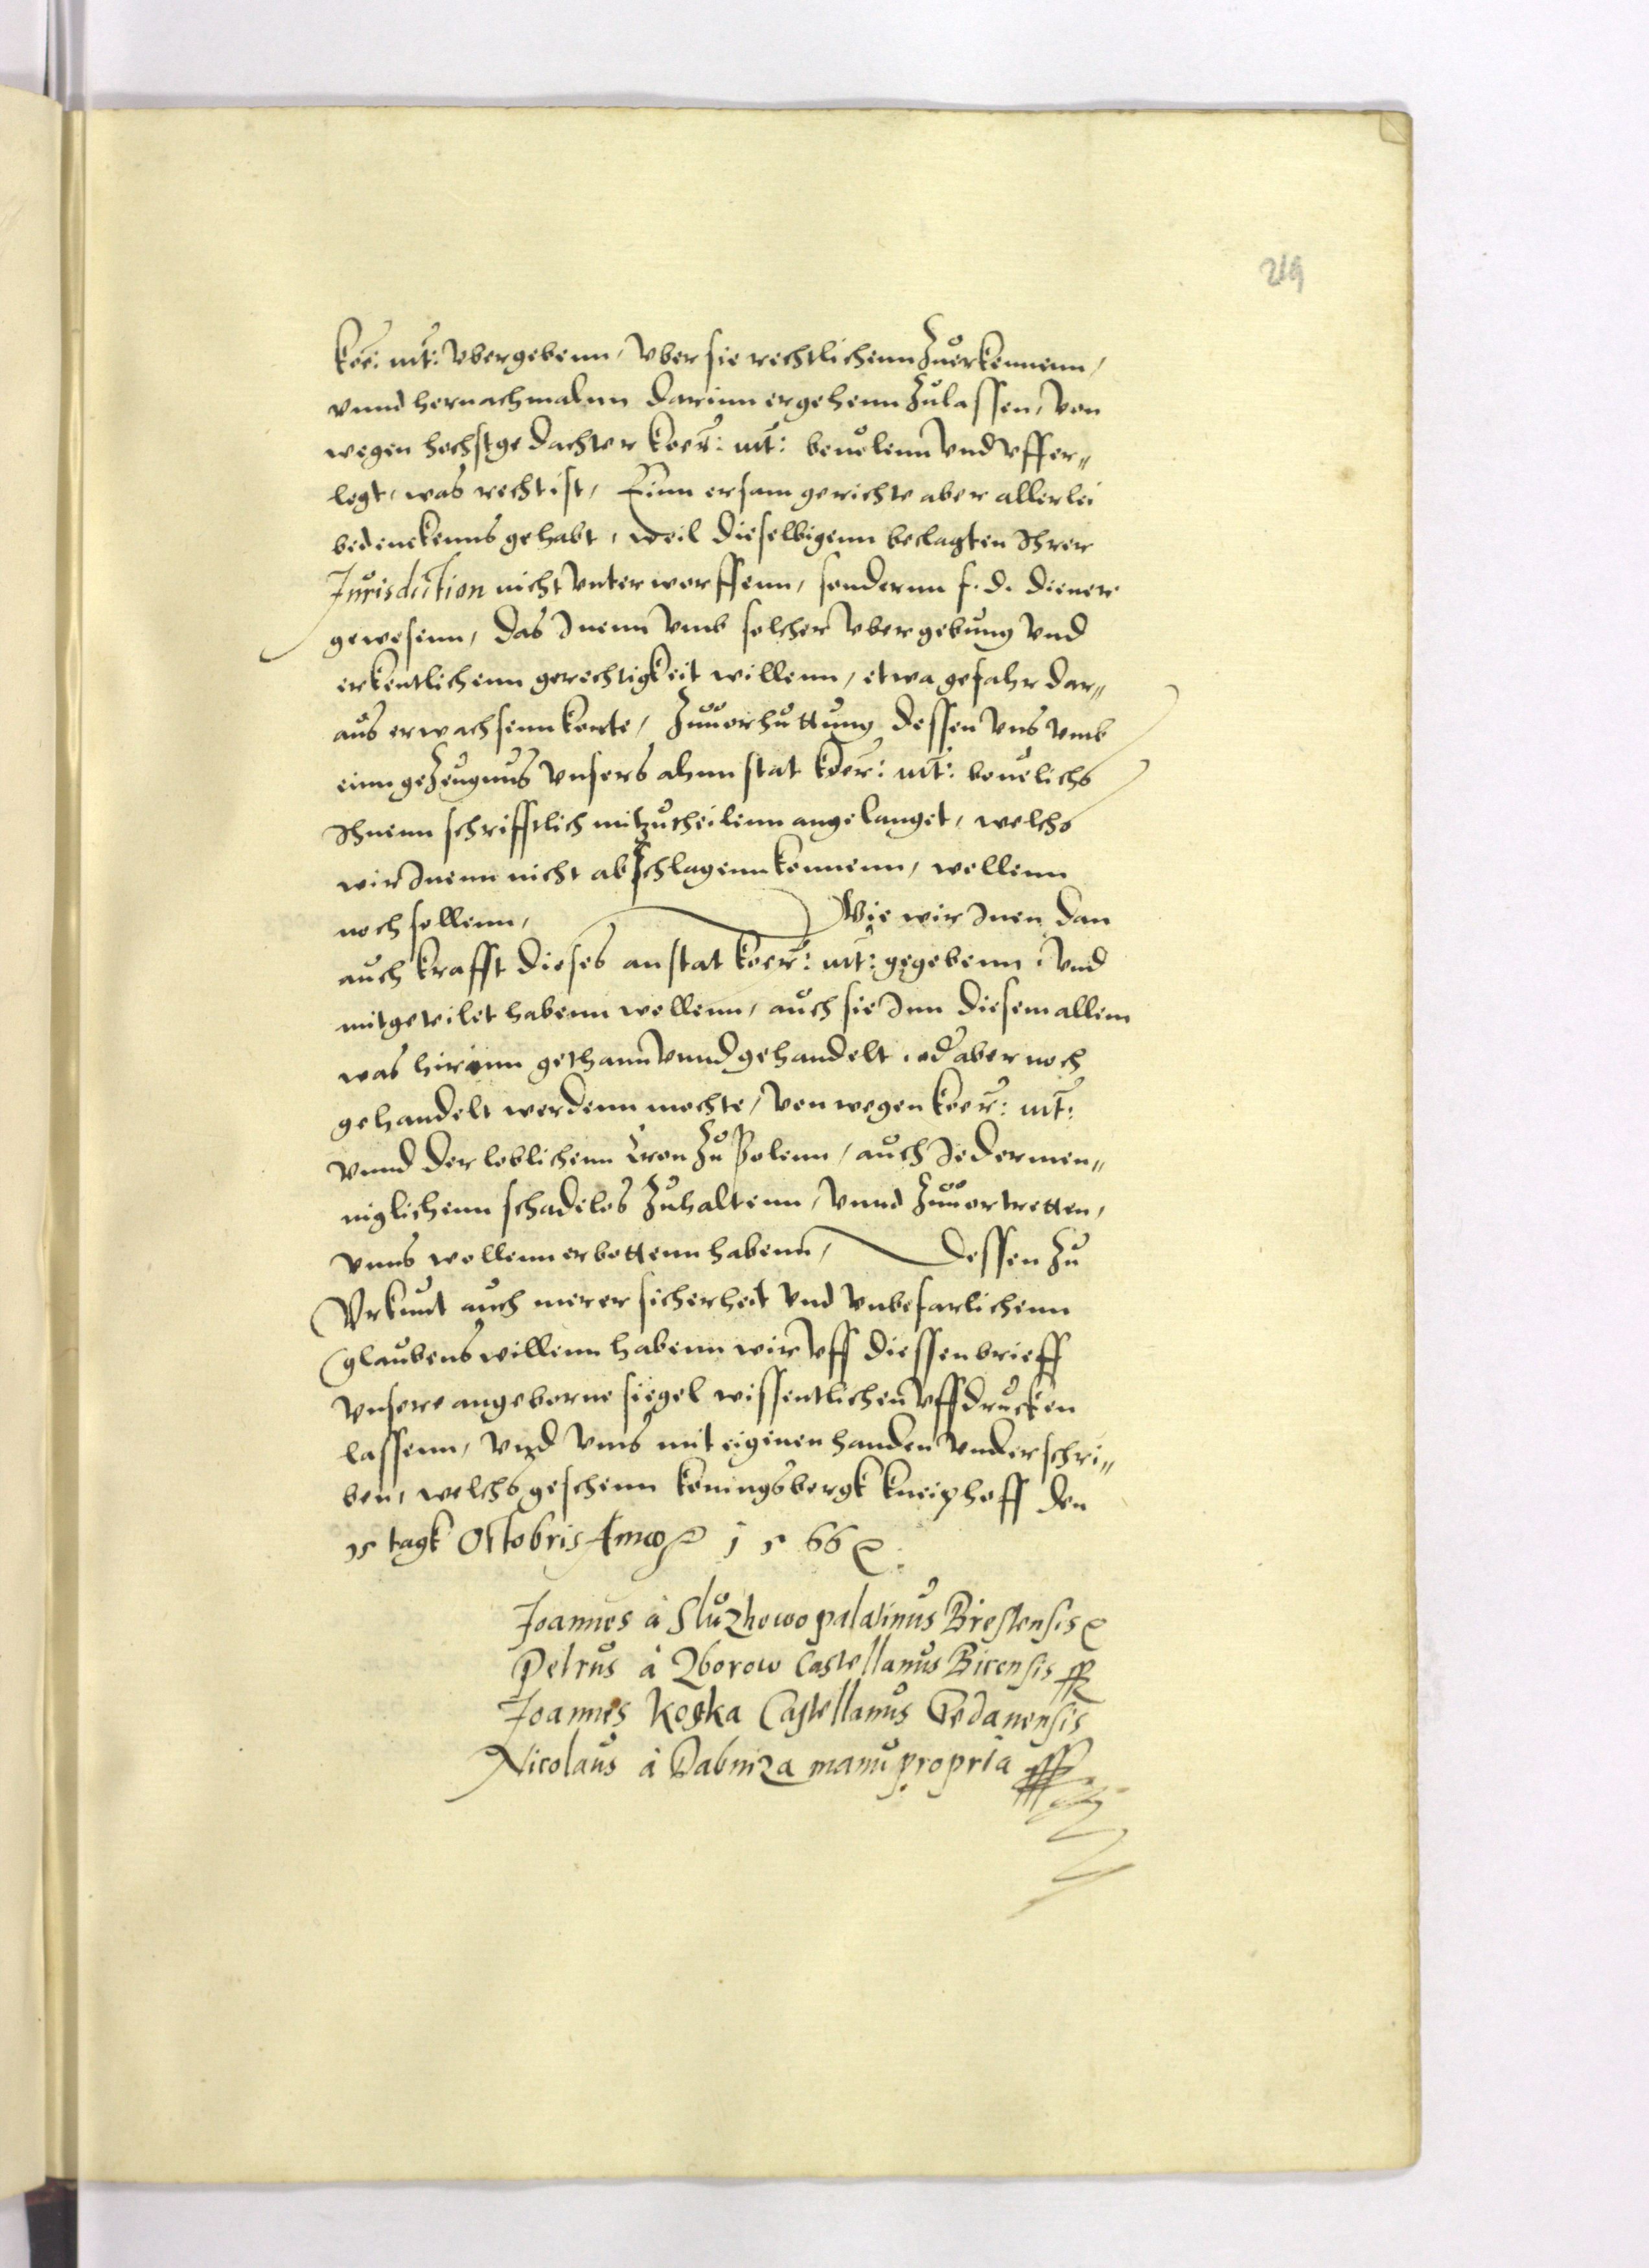 219
koe: mt: vbergebenn, vber sie rechtlichenn Zuerkennenn,
vnnd hernachmalnn darinn ergehenn Zulassen, von
wegen hochstgedachter koer: mt: beuelenn vnd vffer„
legt, was recht ist, Einn ersam gerichte aber allerlei
bedenckenns gehabt, weil dieselbigenn beclagten Ihrer
Jurisdiction nicht vnterworffenn, sondernn f. d. diener
gewesenn, das Inenn vmb solcher vbergebung vnd
erkentlichenn gerechtigkeit willenn, etwa gefahr dar„
aus erwachsenn konte, Zuuorhuttung dessen vns vmb
einn geZeugnus vnsers ahnn stat koer: mt: beuelichs
Ihnenn schrifftlich mitzutheilenn angelanget, welchs
wir Inenn nicht abschlagenn konnenn, wollenn
noch sollenn, Wie wir Inen dan
auch krafft dieses anstat koer: mt: gegebenn, vnd
mitgeteilet habenn wollenn, auch sie Inn diesem allem
was hirinn gethann vnnd gehandelt, od aber noch
gehandelt werdenn mochte, von wegen koer: mt:
vnnd der loblichenn Cron Zu Polenn, auch Jedermen„
niglichenn schadelos Zuhaltenn, vnnd Zuuortretten,
vnns wollenn erbottenn habenn, Dessen Zu
Vrkunt auch merer sicherheit vnd vnbefarlichenn
glaubens willenn habenn wir vff diessen brieff
vnsere angeborne siegel wissentlichen vffdrucken
lassenn, vnd vnns mit eigenen handen vnderschri„
ben, welchs geschenn koningsbergk kneiphoff den
15 tagk Octobris Anno 1566
Joannes à Sluzhowo palatinus Brestensis
Petrus à Zborow Castellanus Bicensis
Joannes Kostka Castellanus Gedanensis
Nicolaus à Dabniza manu propria